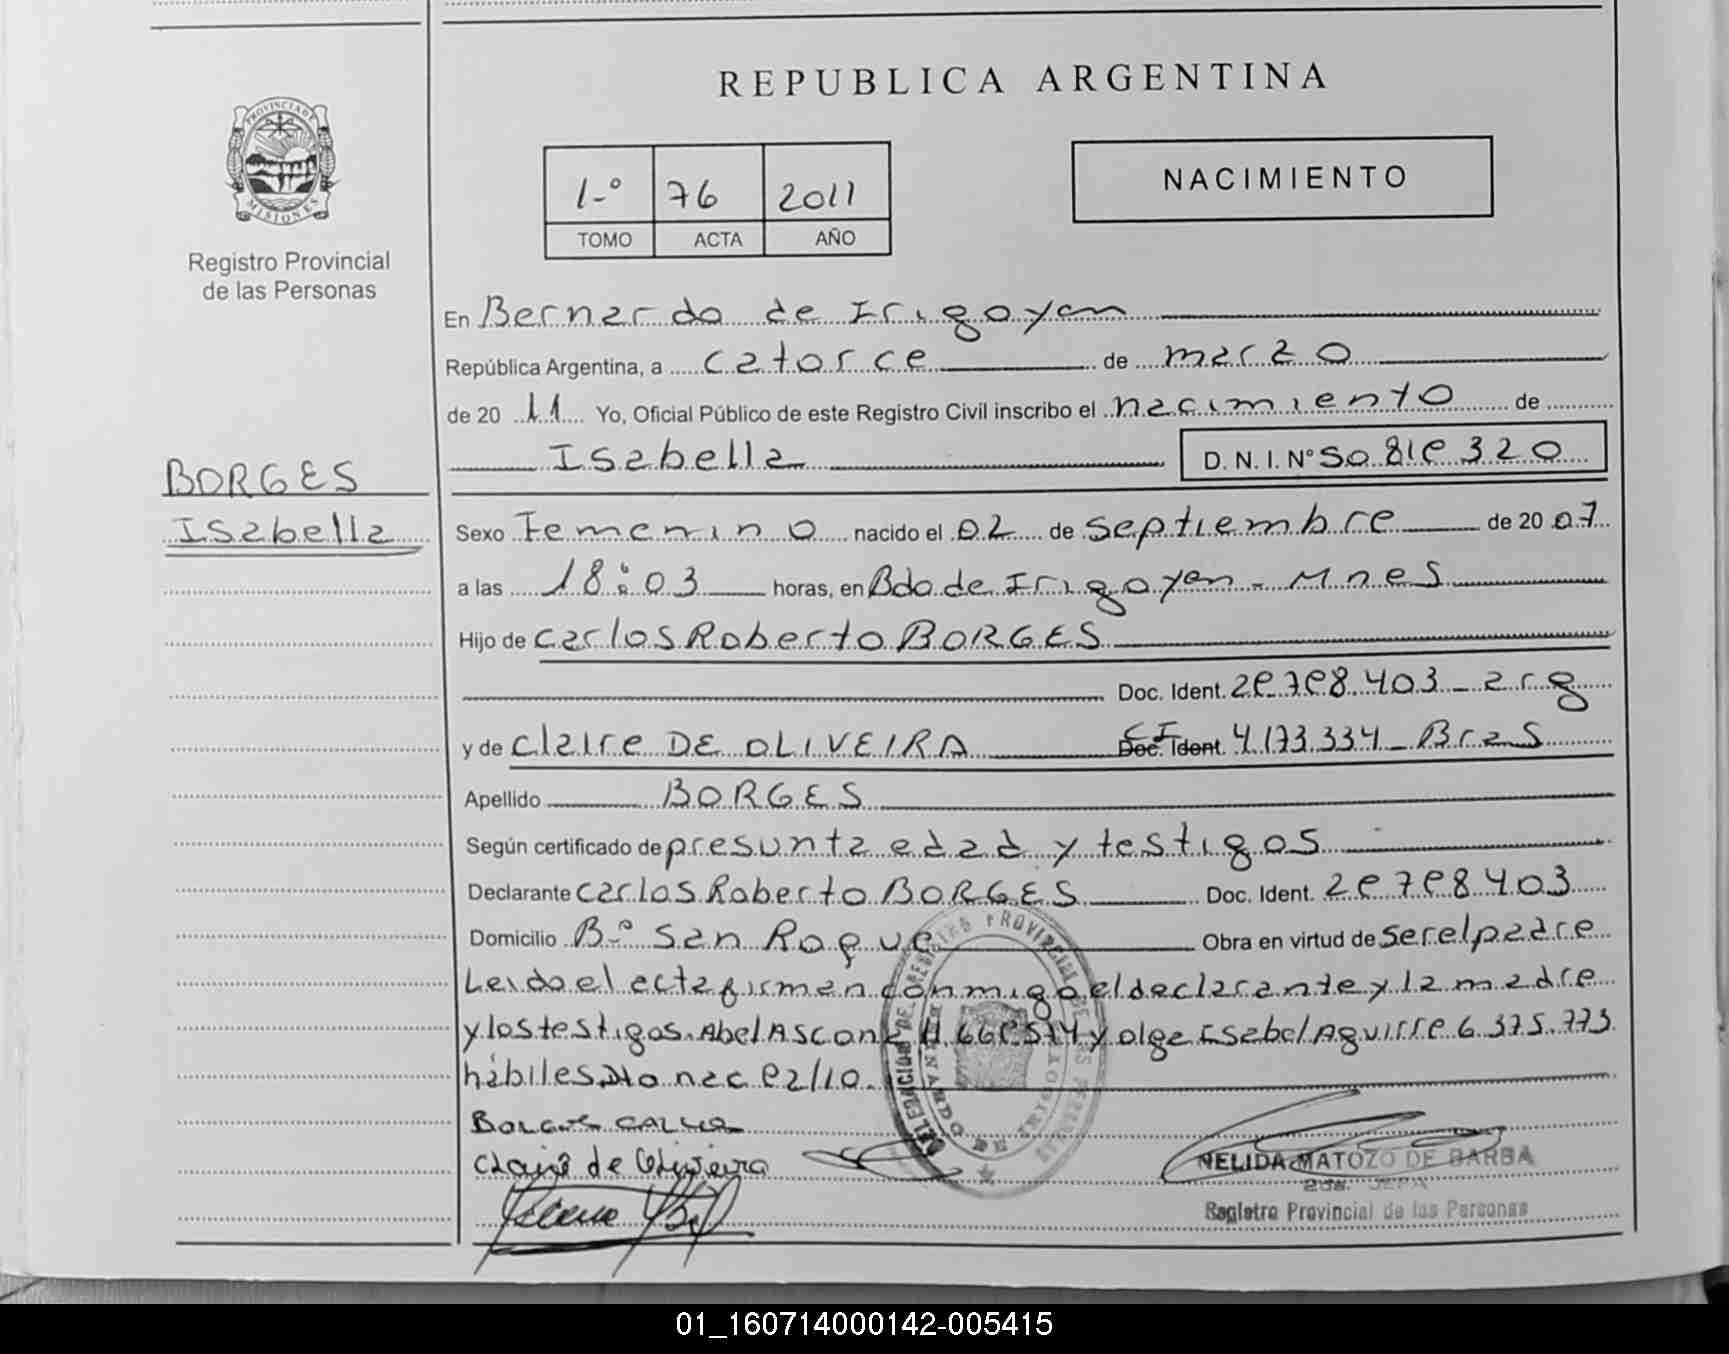 REPUBLICA ARGENTINA
PROVINCIA DE MISIONES
Registro Provincial
de las Personas
1-º 76 2011
TOMO ACTA AÑO
NACIMIENTO
En Bernardo de Irigoyen
República Argentina, a catorce de marzo
de 20 11 Yo, Oficial Público de este Registro Civil inscribo el nacimiento de
Isabella D. N. I. Nº 50.818.320
BORGES
Isabella
Sexo Femenino nacido el 02 de septiembre de 20 07
a las 18:03 horas, en Bdo de Irigoyen - Mnes
Hijo de Carlos Roberto BORGES
Doc. Ident. 28.788.403 - arg
y de Claire DE OLIVEIRA CI Doc. Ident. 4.173.334 - Bras
Apellido BORGES
Según certificado de presunta edad y testigos
Declarante Carlos Roberto BORGES Doc. Ident. 28.788.403
Domicilio Bº San Roque Obra en virtud de ser el padre
Leido el acta firman conmigo el declarante y la madre
y los testigos Abel y Olga Isabel Aguirre 6.375.773
hábiles Dto nac 82/10.
Claire de Oliveira
NELIDA MATOZO DE BARBA
Registro Provincial de las Personas
01_160714000142-005415